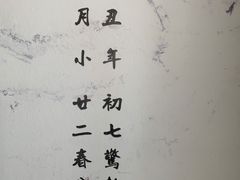 丑年初七驚
月小廿二春